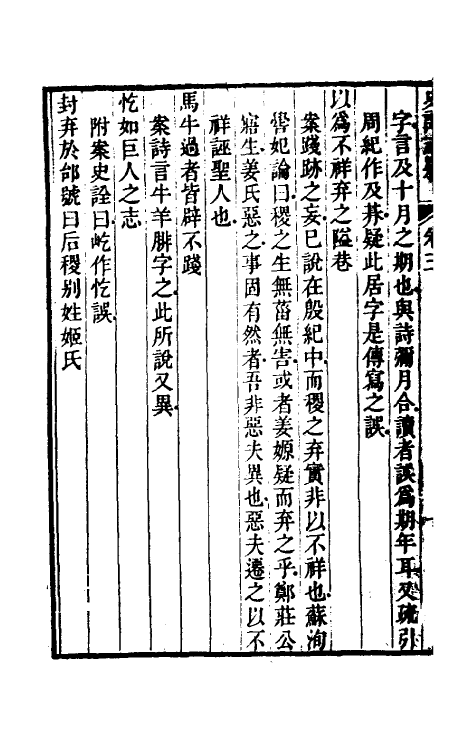 字言及十月之期也與詩彌月合讀者誤爲期年耳又疏引
周紀作及朞疑此居字是傳寫之誤
以爲不祥弃之隘巷
案踐跡之妄已說在殷紀中而稷之弃實非以不祥也蘇洵
嚳妃論曰稷之生無菑無害或者姜嫄疑而弃之乎鄭莊公
寤生姜氏惡之事固有然者吾非惡夫異也惡夫遷之以不
祥誣聖人也
馬牛過者皆辟不踐
案詩言牛羊腓字之此所說又異
忔如巨人之志
附案史詮曰屹作忔誤
封弃於邰號曰后稷别姓姬氏